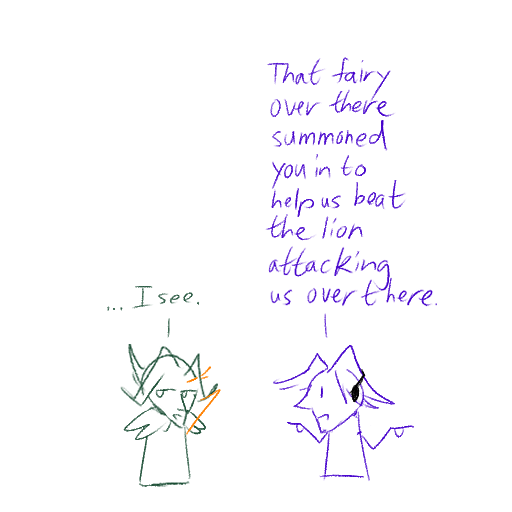 That fairy
over there
summoned
you in to
help us beat
the lion
attacking
us over there.
... I see.